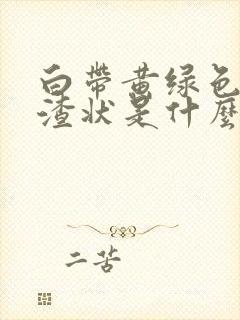 白帶黄绿色
渣状是什麽
二苦